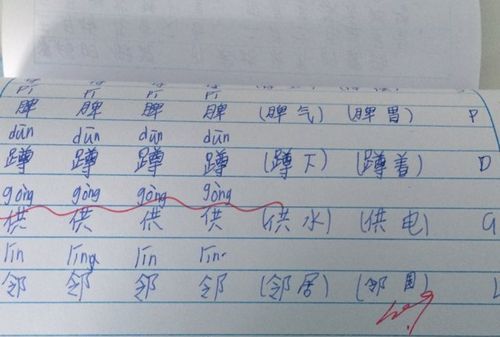 pí pí pí pí
脾 脾 脾 脾 (脾气) (脾胃) P
dūn dūn dūn dūn
蹲 蹲 蹲 蹲 (蹲下) (蹲着) D
gòng gòng gòng gòng
供 供 供 供 (供水) (供电) G
lín líng lín lín
邻 邻 邻 邻 (邻居) (邻国) L